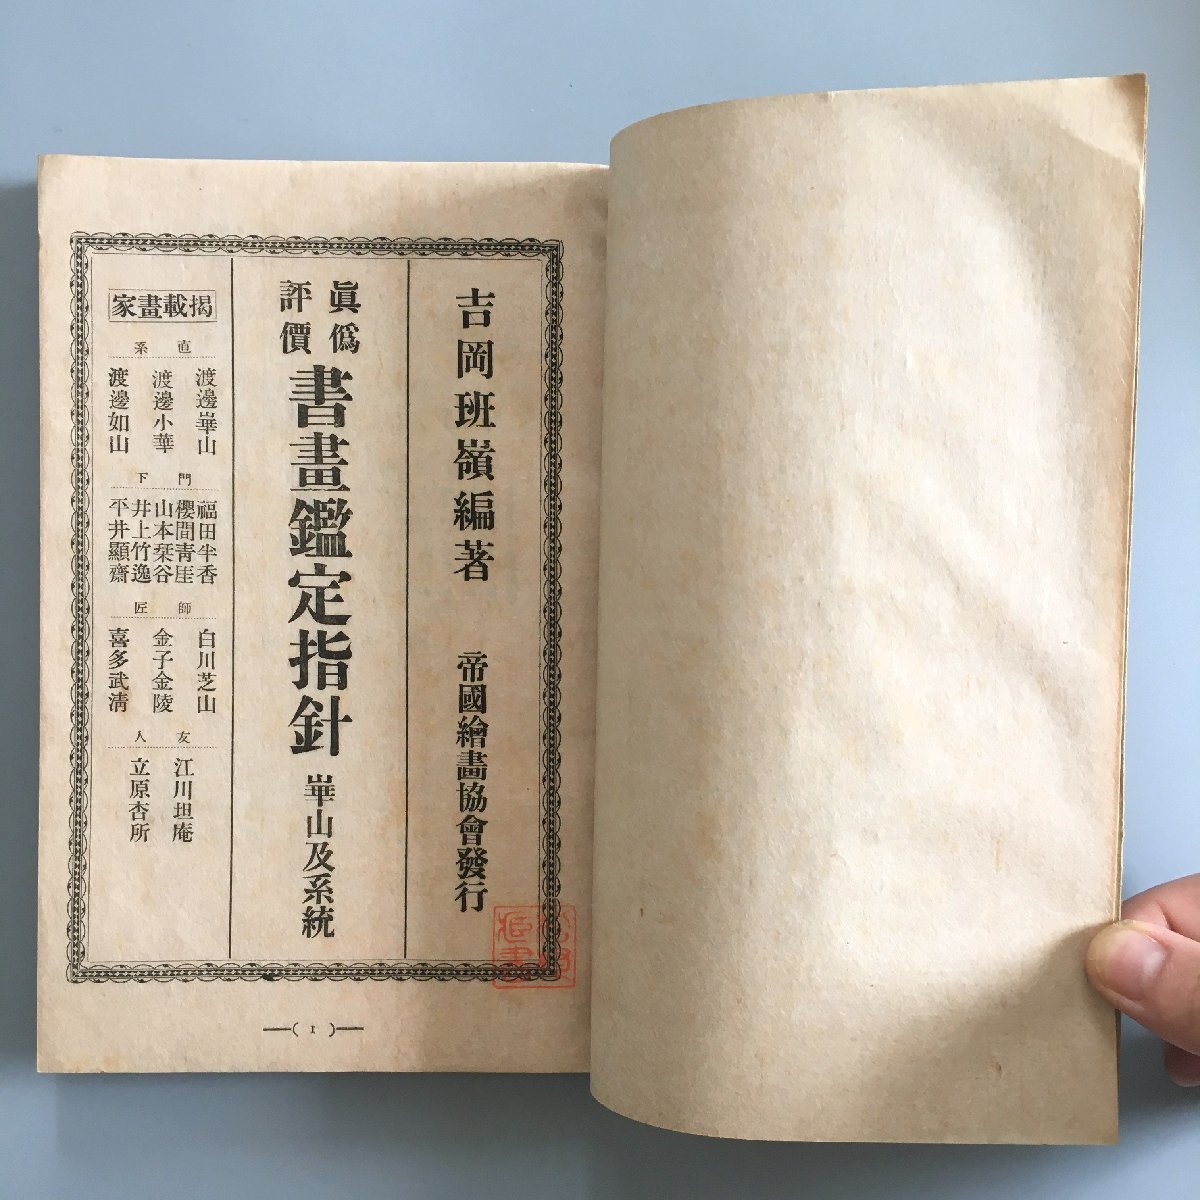 吉岡班嶺編著
帝國繪畫協會發行
眞僞
評價
書畫鑑定指針
崋山及系統
揭載畫家
直系
渡邊崋山
渡邊小華
渡邊如山
門下
福田半香
櫻間靑厓
山本栞谷
井上竹逸
平井顯齋
師匠
白川芝山
金子金陵
喜多武淸
友人
江川坦庵
立原杏所
( 1 )